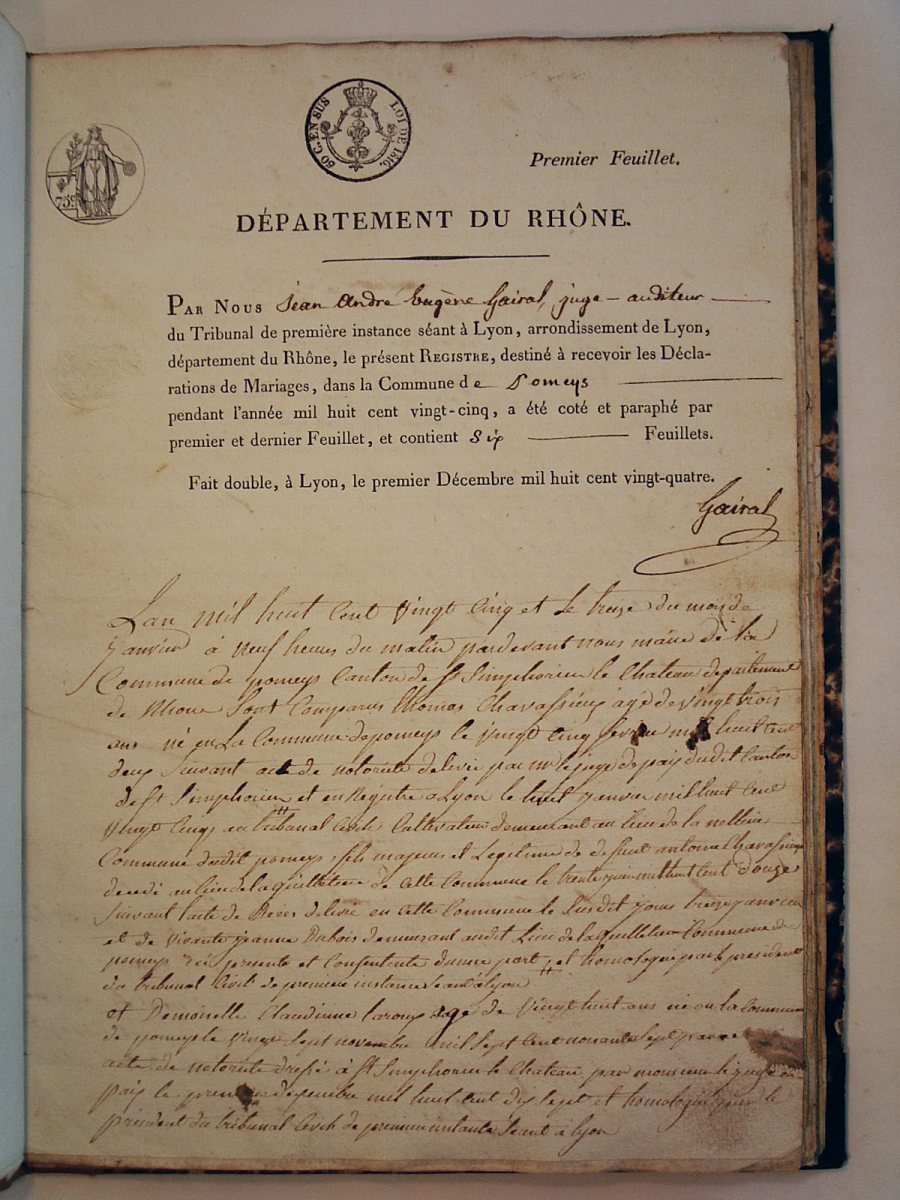 80 C. EN SUS LOI DE 1816.
75c.
Premier Feuillet.
DÉPARTEMENT DU RHÔNE.
PAR NOUS Jean André Eugène Gairal, juge-auditeur
du Tribunal de première instance séant à Lyon, arrondissement de Lyon,
département du Rhône, le présent REGISTRE, destiné à recevoir les Décla-
rations de Mariages, dans la Commune de Pomeys
pendant l'année mil huit cent vingt-cinq, a été coté et paraphé par
premier et dernier Feuillet, et contient Six Feuillets.
Fait double, à Lyon, le premier Décembre mil huit cent vingt-quatre.
Gairal
L'an mil huit Cent Vingt Cinq et le treize du mois de
Janvier à neuf heures du matin pardevant nous maire de la
Commune de pomeys Canton de St Simphorien le Chateau departement
de Rhone Sont Comparus thomas agé de vingt trois
ans né en La Commune de pomeys le vingt Cinq mil huit Cent
deux Suivant acte de notorieté delivré par mr le juge de paix dudit Canton
de St Simphorien et enregistré a Lyon le huit Janvier mil huit Cent
Vingt Cinq au tribunal Civile Cultivateur demeurant au lieu de la
Commune dudit pomeys fils majeur et Legitime de defunt antoine
decedé au lieu de de Cette Commune le trente mil huit Cent Douze
Suivant l'acte de Deces delivré en Cette Commune le Susdit jour treize janvier
et de vivante jeanne Dubois demeurant audit Lieu de Commune de
pomeys ici presente et Consentente d'une part, et homologué par le president
du tribunal Civil de premiere instance Seant a lyon
et Demoiselle Claudinne agé de Vingt huit ans né en la Commune
de pomeys le Vingt Sept novembre mil Sept Cent nonante Sept par
acte de notorieté dressé à St Simphorien le Chateau par monsieur le juge de
paix le premier mil huit Cent dix Sept et homologué par le
president du tribunal Civile de premiere instance Seant à lyon